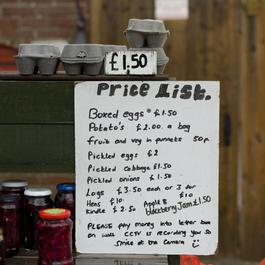 £1.50
Price List.
Boxed eggs* £1.50
Potato's £2.00 a bag
Fruit and veg in punnets 50p
Pickled eggs £2
Pickled cabbage £1.50
Pickled onions £1.50
Logs £3.50 each or 3 for £10
Hens £10 Apple &
Kindle £2.50 blackberry Jam £1.50
PLEASE pay money into letter box
on wall CCTV is recording you so
smile at the camera